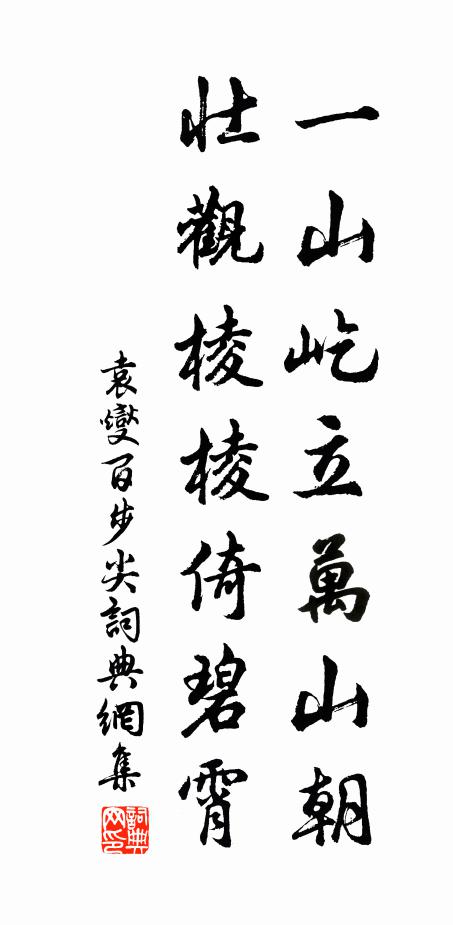 一山屹立萬山朝
壯觀棱棱倚碧霄
袁燮百步尖詞典網集
詞典网印